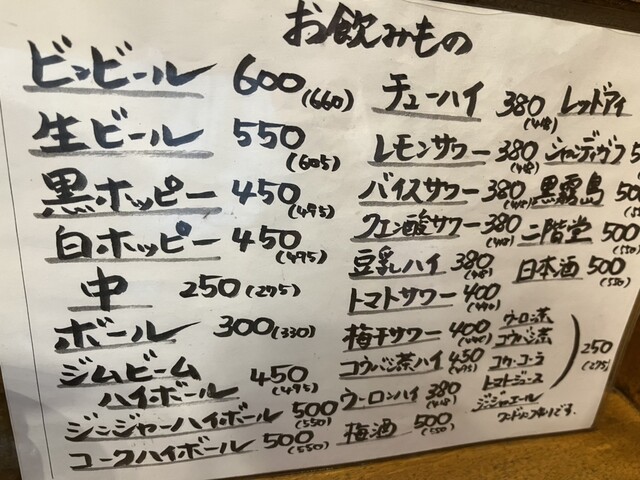 お飲みもの
ビンビール 600(660)
生ビール 550(605)
黒ホッピー 450(495)
白ホッピー 450(495)
中 250(275)
ボール 300(330)
ジムビーム
ハイボール 450(495)
ジンジャーハイボール 500(550)
コークハイボール 500(550)
チューハイ 380(418)
レモンサワー 380(418)
バイスサワー 380(418)
クエン酸サワー 380(418)
豆乳ハイ 380(418)
トマトサワー 400(440)
梅干サワー 400(440)
コウバシ茶ハイ 450(495)
ウーロンハイ 380(418)
梅酒 500(550)
レッドアイ
シャンディガフ
黒霧島 500
二階堂 500(550)
日本酒 500(550)
ウーロン茶
コウバシ茶
コカ・コーラ
トマトジュース
ジンジャエール
250(275)